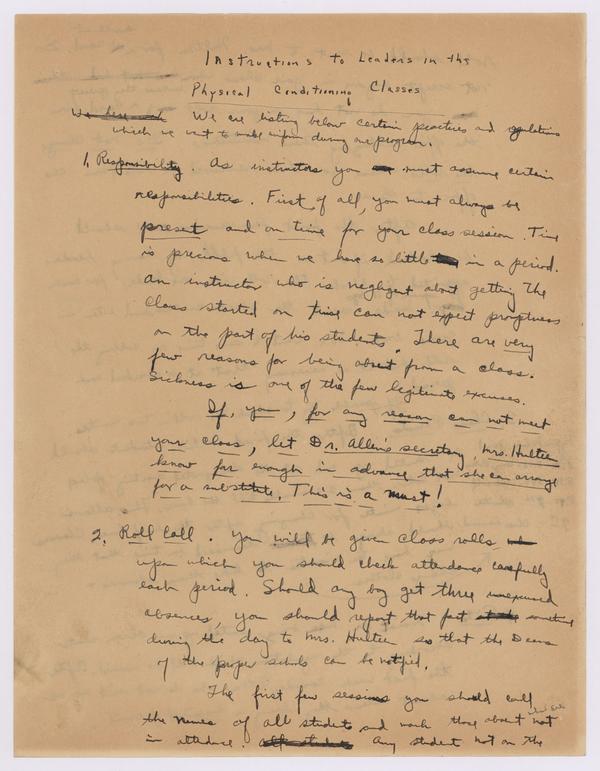 Instructions to Leaders in the
Physical Conditioning Classes
We are listing below certain practices and regulations
which we want to make uniform during our program.
1. Responsibility. As instructors you must assume certain
responsibilities. First of all, you must always be
present and on time for your class session. Time
is precious when we have so little in a period.
An instructor who is negligent about getting the
class started on time can not expect promptness
on the part of his students. There are very
few reasons for being absent from a class.
Sickness is one of the few legitimate excuses.
If, you, for any reason can not meet
your class, let Dr. Allen's secretary, Mrs. Hulteen
know far enough in advance that she can arrange
for a substitute. This is a must!
2. Roll Call. You will be given class rolls
upon which you should check attendance carefully
each period. Should any boy get three unexcused
absences, you should report that fact sometime
during the day to Mrs. Hulteen so that the Deans
of the proper schools can be notified.
The first few sessions you should call
the names of all students and mark those absent not
in attendance. Any student not on the